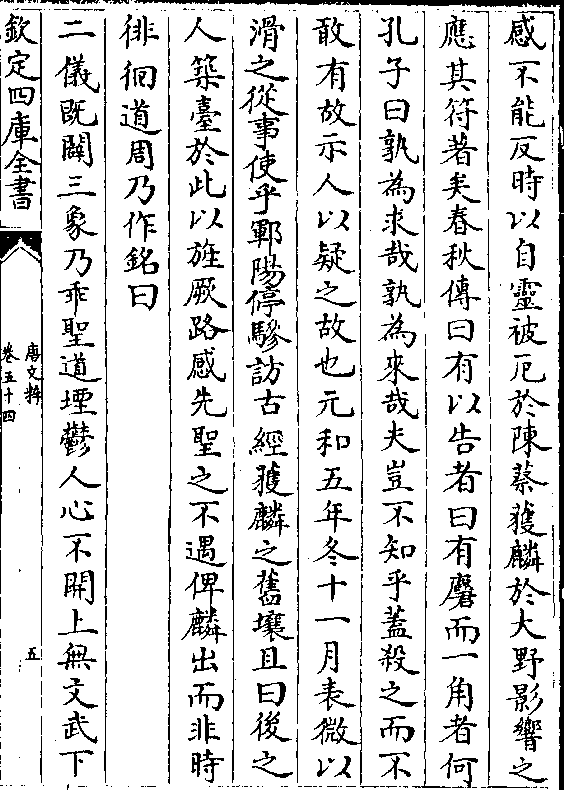 感不能反時以自靈被厄於陳蔡獲麟於大野影響之
應其符著矣春秋傳曰有以告者曰有麏而一角者何
孔子曰孰為求哉孰為來哉夫豈不知乎蓋殺之而不
敢有故示人以疑之故也元和五年冬十一月表微以
滑之從事使乎鄆陽停驂訪古經獲麟之舊壤且曰後之
人築臺於此以旌厥路感先聖之不遇俾麟出而非時
徘徊道周乃作銘曰
二儀既闢三象乃乖聖道堙鬱人心不開上無文武下
欽定四庫全書
唐文粹
卷五十四
五